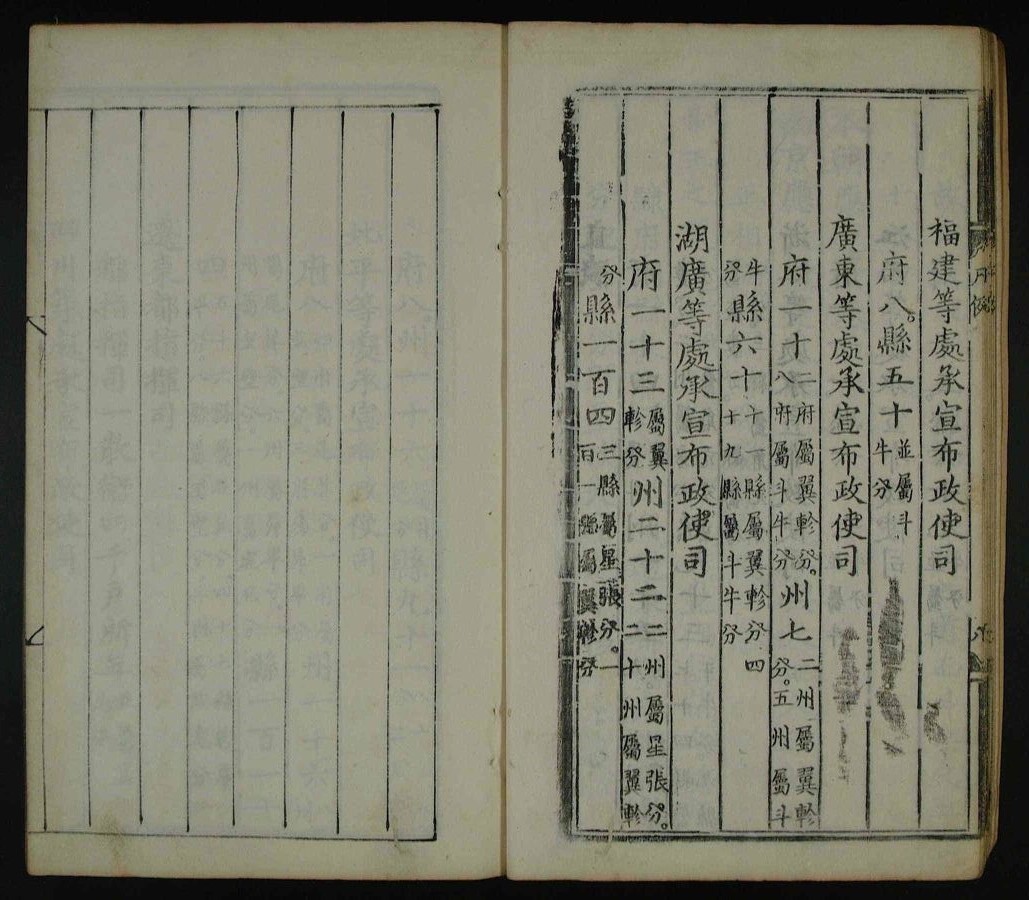 福建等處承宣布政使司
府八縣五十並屬斗牛分
廣東等處承宣布政使司
府十二府屬翼軫分。八府屬斗牛分州七二州屬翼軫分。五州屬斗
牛分縣六十十一縣屬翼軫分四十九縣屬斗牛分
湖廣等處承宣布政使司
府一十三屬翼軫分州二十二二州屬星張分。二十州屬翼軫
分縣一百四三縣屬星張分。一百一縣屬翼軫分